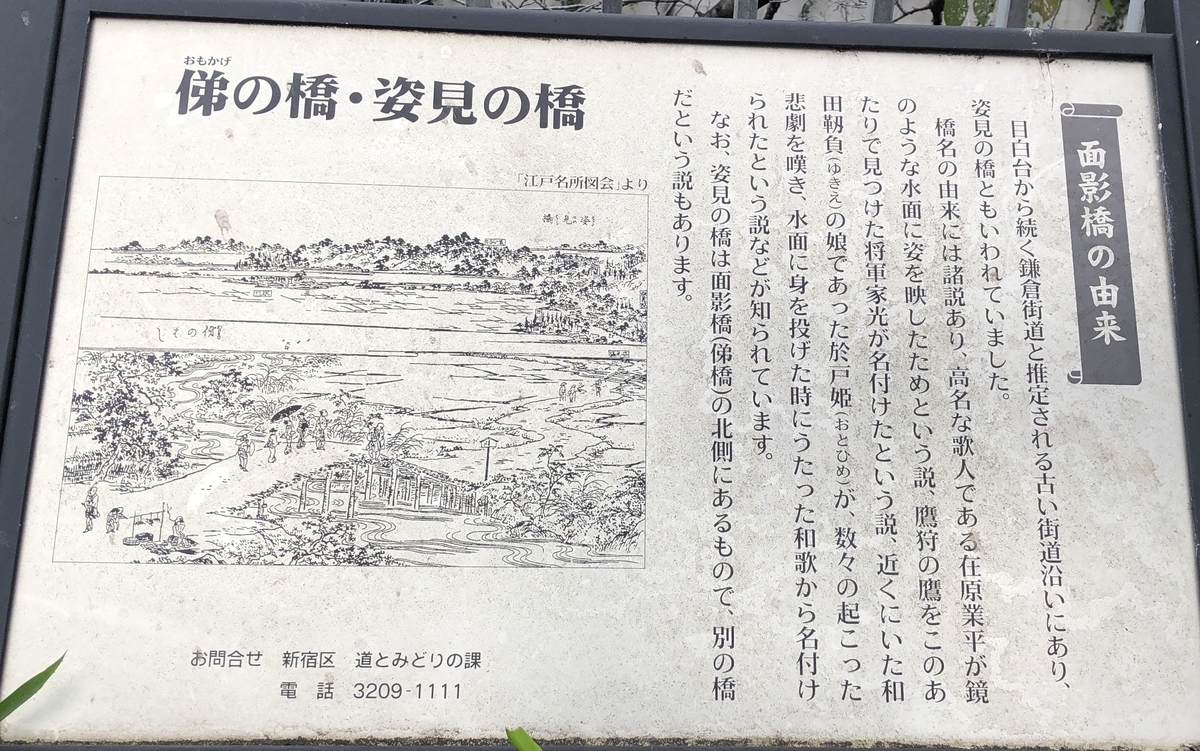 面影橋の由来
目白台から続く鎌倉街道と推定される古い街道沿いにあり、
姿見の橋ともいわれていました。
橋名の由来には諸説あり、高名な歌人である在原業平が鏡
のような水面に姿を映したためという説、鷹狩の鷹をこのあ
たりで見つけた将軍家光が名付けたという説、近くにいた和
田靱負(ゆきえ)の娘であった於戸姫(おとひめ)が、数々の起こった
悲劇を嘆き、水面に身を投げた時にうたった和歌から名付け
られたという説などが知られています。
なお、姿見の橋は面影橋(俤橋)の北側にあるもので、別の橋
だという説もあります。
おもかげ
俤の橋・姿見の橋
「江戸名所図会」より
お問合せ 新宿区 道とみどりの課
電 話 3209-1111